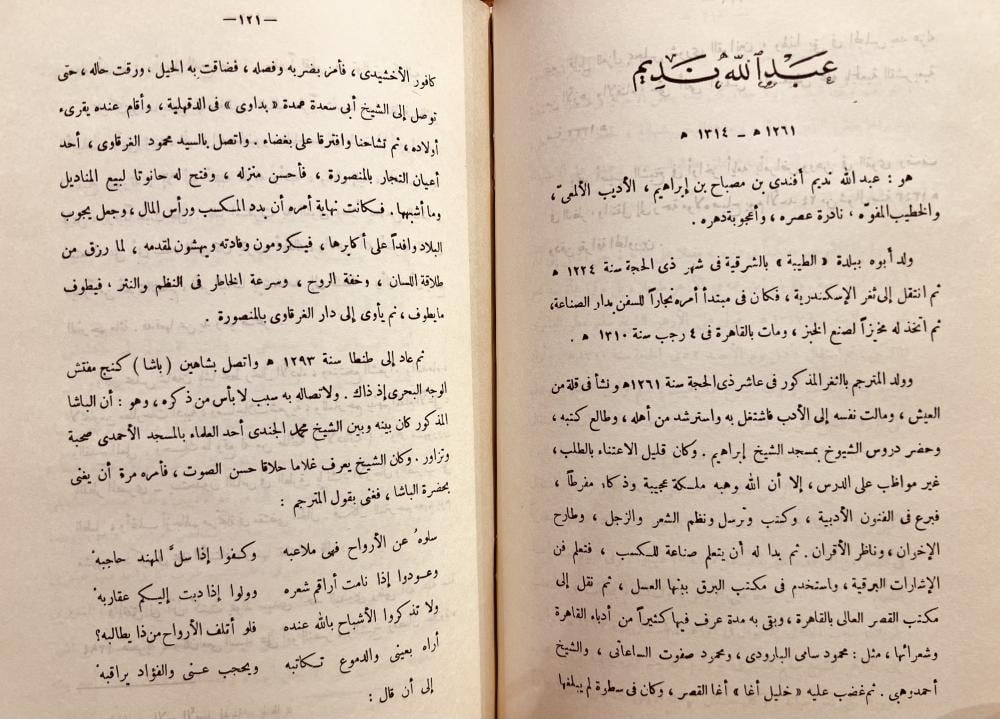 عبد الله نديم
١٢٦١ هـ – ١٣١٤ هـ
هو : عبد الله نديم أفندى بن مصباح بن إبراهيم ، الأديب الألمعىّ ،
والخطيب المفوّه ، نادرة عصره ، وأعجوبة دهره .
ولد أبوه ببلدة « الطيبة » بالشرقية فى شهر ذى الحجة سنة ١٢٢٤ هـ
ثم انتقل إلى ثغر الإسكندرية ، فكان فى مبتدأ أمره نجاراً للسفن بدار الصناعة،
ثم اتخذ له مخبزاً لصنع الخبز ، ومات بالقاهرة فى ٤ رجب سنة ١٣١٠ هـ .
وولد المترجم بالثغر المذكور فى عاشر ذى الحجة سنة ١٢٦١هـ ونشأ فى قلة من
العيش ، ومالت نفسه إلى الأدب فاشتغل به واسترشد من أهله ، وطالع كتبه ،
وحضر دروس الشيوخ بمسجد الشيخ إبراهيم . وكان قليل الاعتناء بالطلب،
غير مواظب على الدرس ، إلا أن الله وهبه ملكة عجيبة وذكاء مفرطاً ،
فبرع فى الفنون الأدبية ، وكتب وترسل ونظم الشعر والزجل ، وطارح
الإخوان ، وناظر الأقران . ثم بدا له أن يتعلم صناعة للكسب ، فتعلم فن
الإشارات البرقية ، واستخدم فى مكتب البرق ببنها العسل ، ثم نقل إلى
مكتب القصر العالى بالقاهرة ، وبقى به مدة عرف فيها كثيراً من أدباء القاهرة
وشعرائها ، مثل : محمود سامى البارودى ، ومحمود صفوت الساعاتى ، والشيخ
أحمد وهبى . ثم غضب عليه « خليل أغا » أغا القصر ، وكان فى سطوة لم يبلغها
—١٢١—
كافور الأخشيدى ، فأمر بضربه وفصله ، فضاقت به الحيل ، ورقت حاله ، حتى
توصل إلى الشيخ أبى سعدة عمدة « بداوى » فى الدقهلية ، وأقام عنده يقرىء
أولاده ، ثم تشاحنا وافترقا على بغضاء . واتصل بالسيد محمود الغرقاوى ، أحد
أعيان التجار بالمنصورة ، فأحسن منزله ، وفتح له حانوتا لبيع المناديل
وما أشبهها . فكانت نهاية أمره أن بدد المكسب ورأس المال ، وجعل يجوب
البلاد وافداً على أكابرها ، فيكرمون وفادته ويهشون لمقدمه ، لما رزق من
طلاقة اللسان ، وخفة الروح ، وسرعة الخاطر فى النظم والنثر . فيطوف
ما يطوف ، ثم يأوى إلى دار الغرقاوى بالمنصورة .
ثم عاد إلى طنطا سنة ١٢٩٣ هـ واتصل بشاهين ( باشا ) كنج مفتش
الوجه البحرى إذ ذاك . ولاتصاله به سبب لا بأس من ذكره ، وهو : أن الباشا
المذكور كان بينه وبين الشيخ محمد الجندى أحد العلماء بالمسجد الأحمدى صحبة
وتزاور . وكان الشيخ يعرف غلاما حلاقا حسن الصوت ، فأمره مرة أن يغنى
بحضرة الباشا ، فغنى بقول المترجم :
سلوهُ عن الأرواح فهى ملاعبه    وكفوا إذا سلَّ المهند حاجبهْ
وعودوا إذا نامت أراقم شعره    وولوا إذا دبت إليكم عقاربهْ
ولا تذكروا الأشباح بالله عنده    فلو أتلف الأرواح من ذا يطالبه؟
أراه بعينى والدموع تكاتبه    ويحجب عنى والفؤاد يراقبهْ
إلى أن قال :